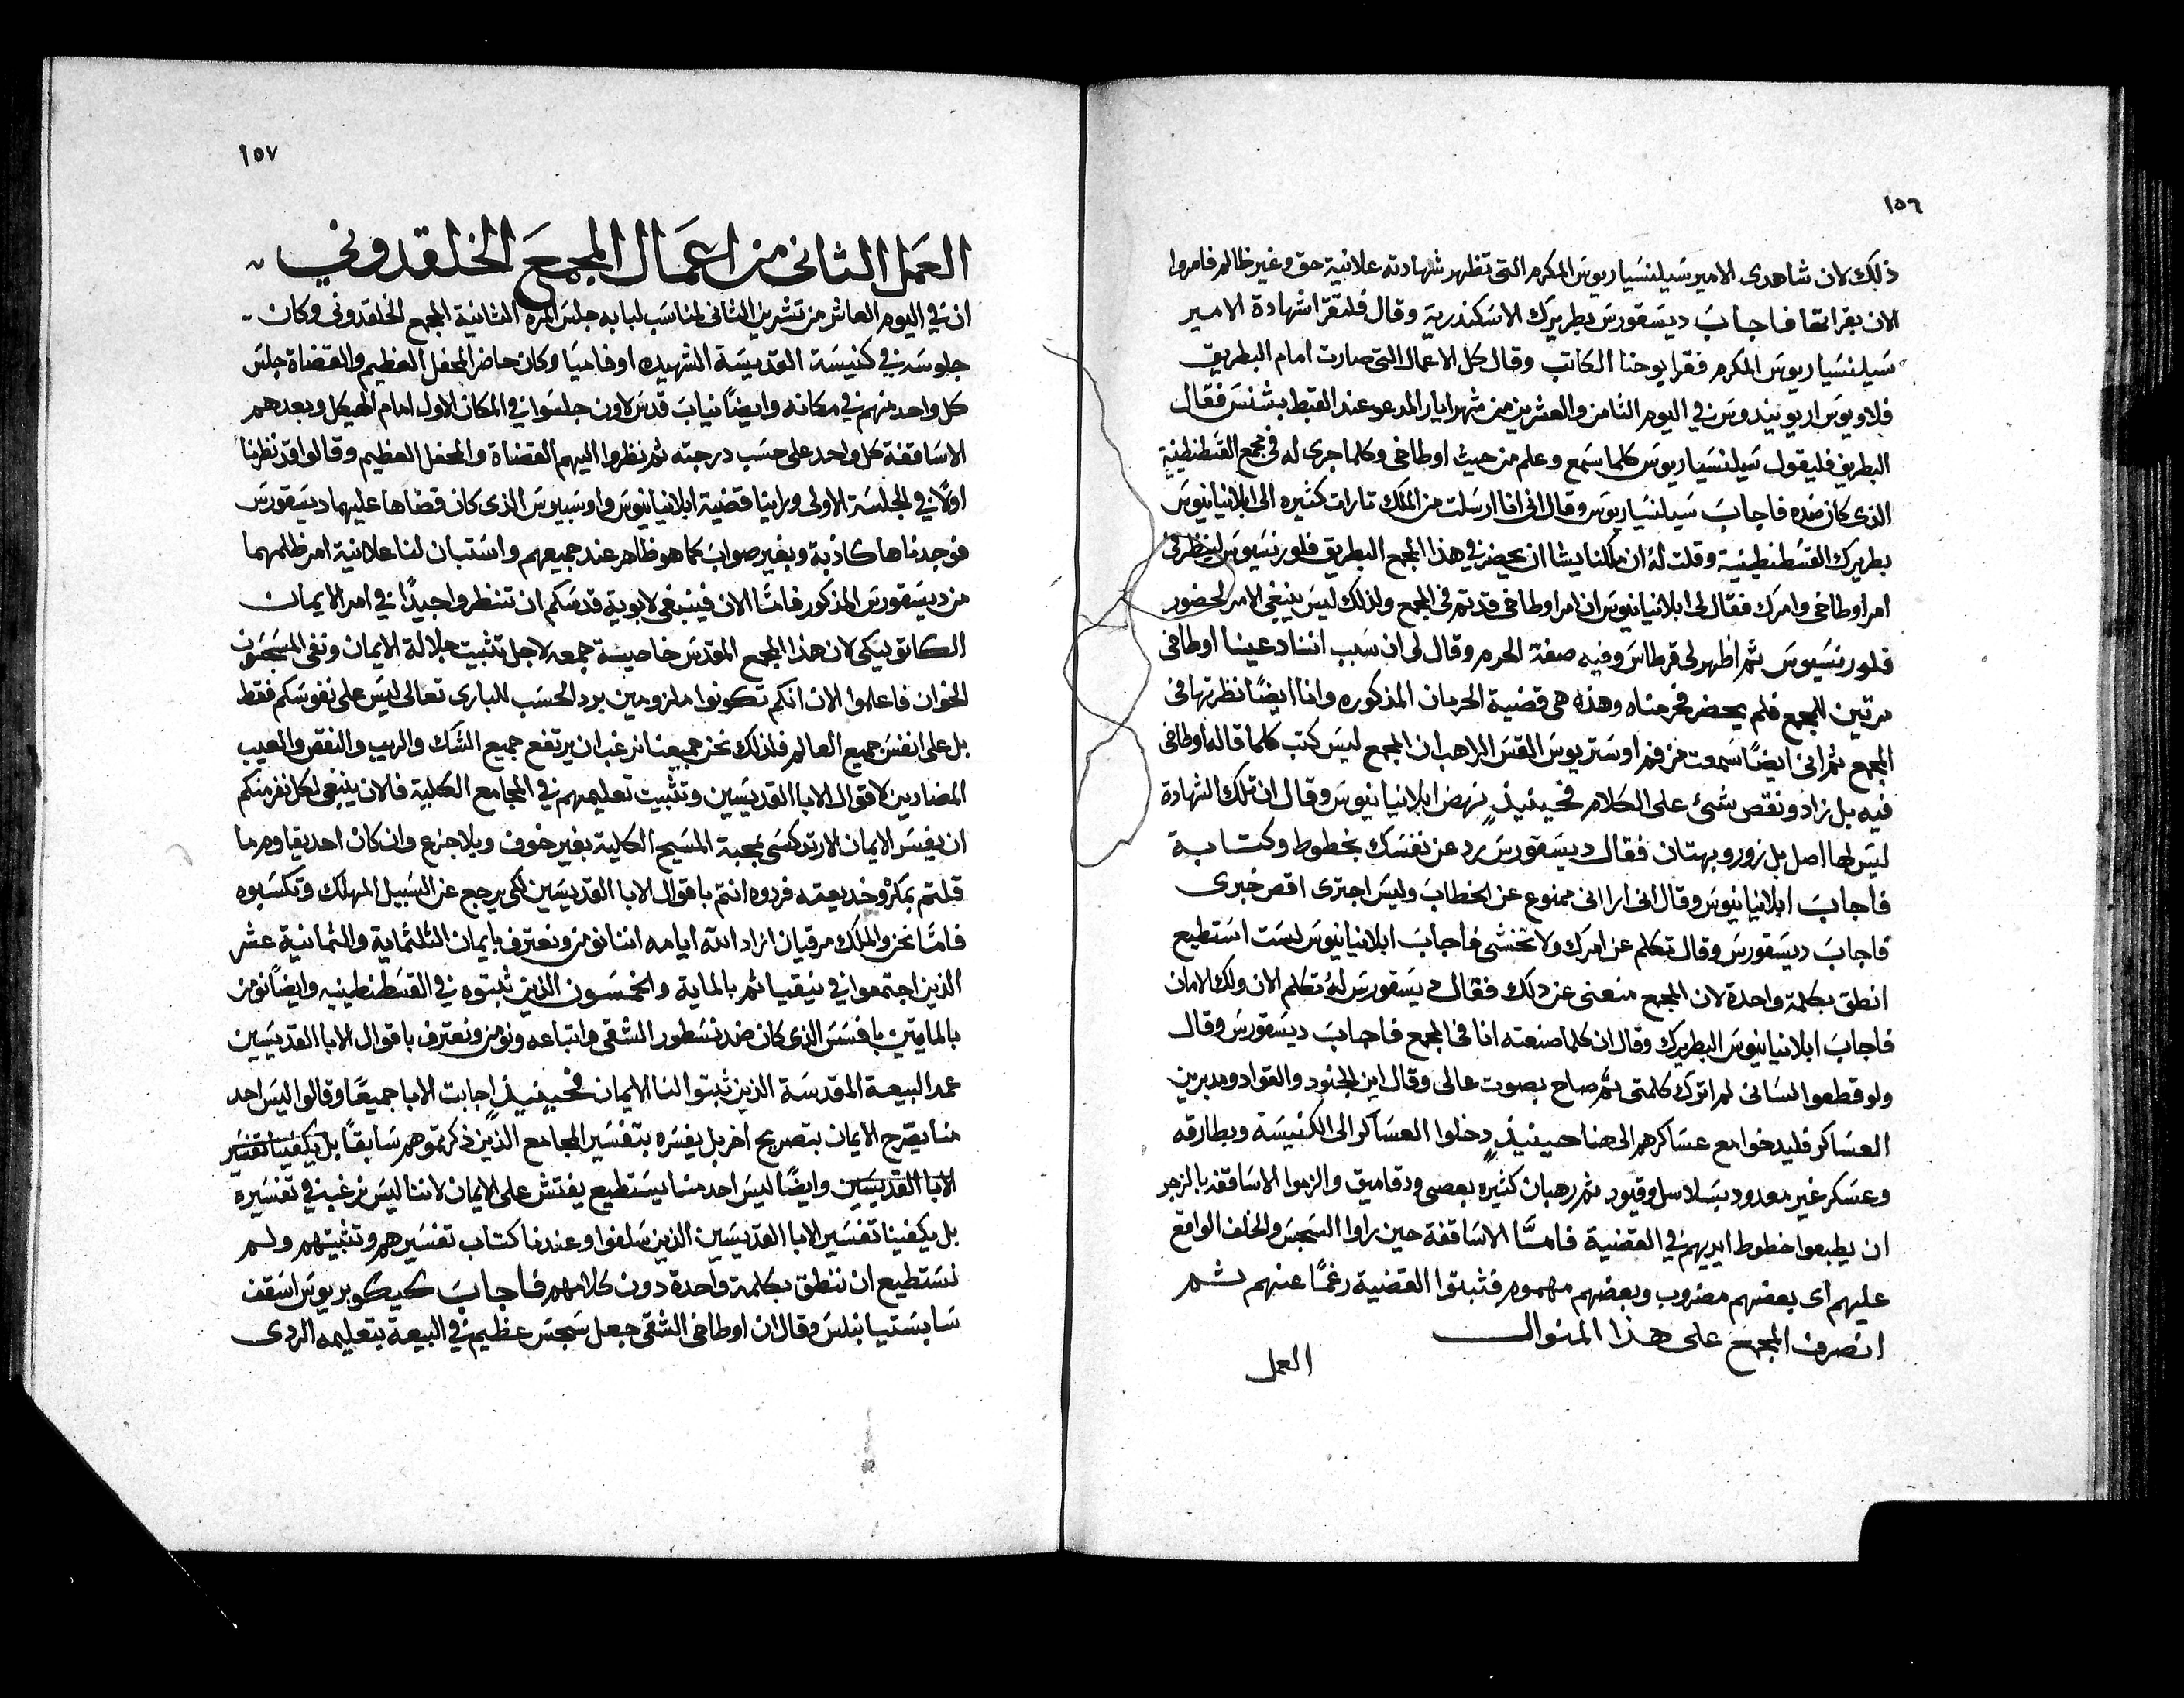 ١٥٦
ذلك لان شاهدى الامير سيلنسياريوس المكرم التى تظهر شهادته علانية حق وغير ظالم فامروا
الان بقراتها فاجاب ديسقورس بطريرك الاسكندرية وقال فلتقرا شهادة الامير
سيلنسياريوس المكرم فقرا يوحنا الكاتب وقال كل الاعمال التى صارت امام البطريق
فلاويوس اريوبيندوس فى اليوم الثامن والعشرين من شهر ايار المدعو عند القبط بشنس فقال
البطريق فليقول سيلنسياريوس كلما سمع وعلم من حيث اوطاخى وكلما جرى له فى مجمع القسطنطينية
الذى كان ضده فاجاب سيلنسياريوس وقال انى انا ارسلت من الملك تارات كثيره الى ابلانيانيوس
بطريرك القسطنطينية وقلت له ان ملكنا يشا ان يحضر فى هذا المجمع البطريق فلورنسيوس لينظر فى
امر اوطاخى وامرك فقال لى ابلانيانيوس ان امر اوطاخى قد تم فى المجمع ولذلك ليس ينبغى الامر لحضور
فلورنسيوس ثم اظهر لى قرطاس وفيه صفة الحرم وقال لى ان سبب اننا دعينا اوطاخى
مرتين للمجمع فلم يحضر فحرمناه وهذه هى قضية الحرمان المذكوره وانا ايضًا نظرتها فى
المجمع ثم انى ايضًا سمعت من فم اوستريوس القس الراهب ان المجمع ليس كتب كلما قاله اوطاخى
فيه بل زاد ونقص شىء على الكلام فحينيذٍ نهض ابلانيانيوس وقال ان تلك الشهادة
ليس لها اصل بل زور وبهتان فقال ديسقورس رد عن نفسك بخطوط وكتابة
فاجاب ابلانيانيوس وقال انى ارا انى ممنوع عن الخطاب وليس اجترى اقص خبرى
فاجاب ديسقورس وقال تكلم عن امرك ولا تخشى فاجاب ابلانيانيوس لست استطيع
انطق بكلمة واحدة لان المجمع منعنى عن ذلك فقال ديسقورس له تكلم الان ولك الامان
فاجاب ابلانيانيوس البطريرك وقال ان كلما صنعته انا فى المجمع فاجاب ديسقورس وقال
ولو قطعوا لسانى لم اترك كلمتى ثم صاح بصوت عالى وقال اين الجنود والقواد ومدبرين
العساكر فليدخوا مع عساكرهم الى هنا حينيذٍ دخلوا العساكر الى الكنيسة وبطارقه
وعسكر غير معدود بسلاسل وقيود ثم رهبان كثيره بعصى ودقاميق والزموا الاساقفه بالزجر
ان يطبعوا خطوط ايديهم فى القضية فامَّا الاساقفة حين راوا السجس والخلف الواقع
عليهم اى بعضهم مضروب وبعضهم مهموم فثبتوا القضية رغمًا عنهم ثم
انصرف المجمع على هذا المنوال
العمل
١٥٧
العمل الثانى من اعمال المجمع الخلقدوني
ان فى اليوم العاشر من تشرين الثانى المناسب لبابه جلس المره الثانية المجمع الخلقدونى وكان
جلوسه فى كنيسة القديسة الشهيده اوفاميا وكان حاضر المحفل العظيم والقضاة جلس
كل واحد منهم فى مكانه وايضًا نياب قدس لاون جلسوا فى المكان الاول امام الهيكل وبعدهم
الاساقفة كل واحد على حسب درجته ثم نظروا اليهم القضاة والمحفل العظيم وقالوا قد نظرنا
اولًا فى الجلسة الاولى وراينا قضية ابلانيانيوس واوسبيوس الذى كان قضاها عليهما ديسقورس
فوجدناها كاذبة وبغير صواب كما هو ظاهر عند جميعهم واستبان لنا علانية امر ظلمهما
من ديسقورس المذكور فامَّا الان فينبغى لابوية قدسكم ان تنظروا جيدًا فى امر الايمان
الكاتوليكى لان هذا المجمع المقدس خاصيته جمعه لاجل تثبيت جلالة الايمان ونفى المسجنون
الخوان فاعلموا الان انكم تكونوا ملزومين برد الحسب للبارى تعالى ليس على نفوسكم فقط
بل على انفس جميع العالم فلذلك نحن جميعنا نرغب ان يرتفع جميع الشك والريب والنقص والعيب
المضادين لاقوال الابا القديسين وتثبيت تعليمهم فى المجامع الكلية فالان ينبغى لكل نفر منكم
ان يفسر الايمان الارتدكسى بمحبة المسيح الكلية بغير خوف وبلا جزع وان كان احد يقاوم ما
قلتم بمكر وخديعته فردوه انتم باقوال الابا القديسين لكى يرجع عن السبيل المهلك وتكسبوه
فامَّا نحن والملك مرقيان ازاد الله ايامه اننا نومن ونعترف بايمان الثلثماية والثمانية عشر
الذين اجتمعوا فى نيقيا ثم بالماية والخمسون الذين ثبتوه فى القسطنطينيه وايضًا نومن
بالمايتين بافسس الذى كان ضد نسطور الشقى واتباعه ونومن ونعترف باقوال الابا القديسين
عمد البيعة المقدسة الذين ثبتوا لنا الايمان فحينيذٍ اجابت الابا جميعًا وقالوا ليس احد
منا يقرح الايمان بتصريح اخر بل يفسره بتفسير المجامع الذين ذكرتموهم سابقًا بل يكفينا تفسير
الابا القديسين وايضًا ليس احد منا يستطيع يفتش على الايمان لاننا ليس نرغب فى تفسيره
بل يكفينا تفسير الابا القديسين الذين سلفوا وعندنا كتاب تفسيرهم وتثبيتهم ولم
نستطيع ان ننطق بكلمة واحدة دون كلامهم فاجاب كيكوبريوس اسقف
سابستيانبلس وقال ان اوطاخى الشقى جعل سجس عظيم فى البيعة بتعليمه الردى